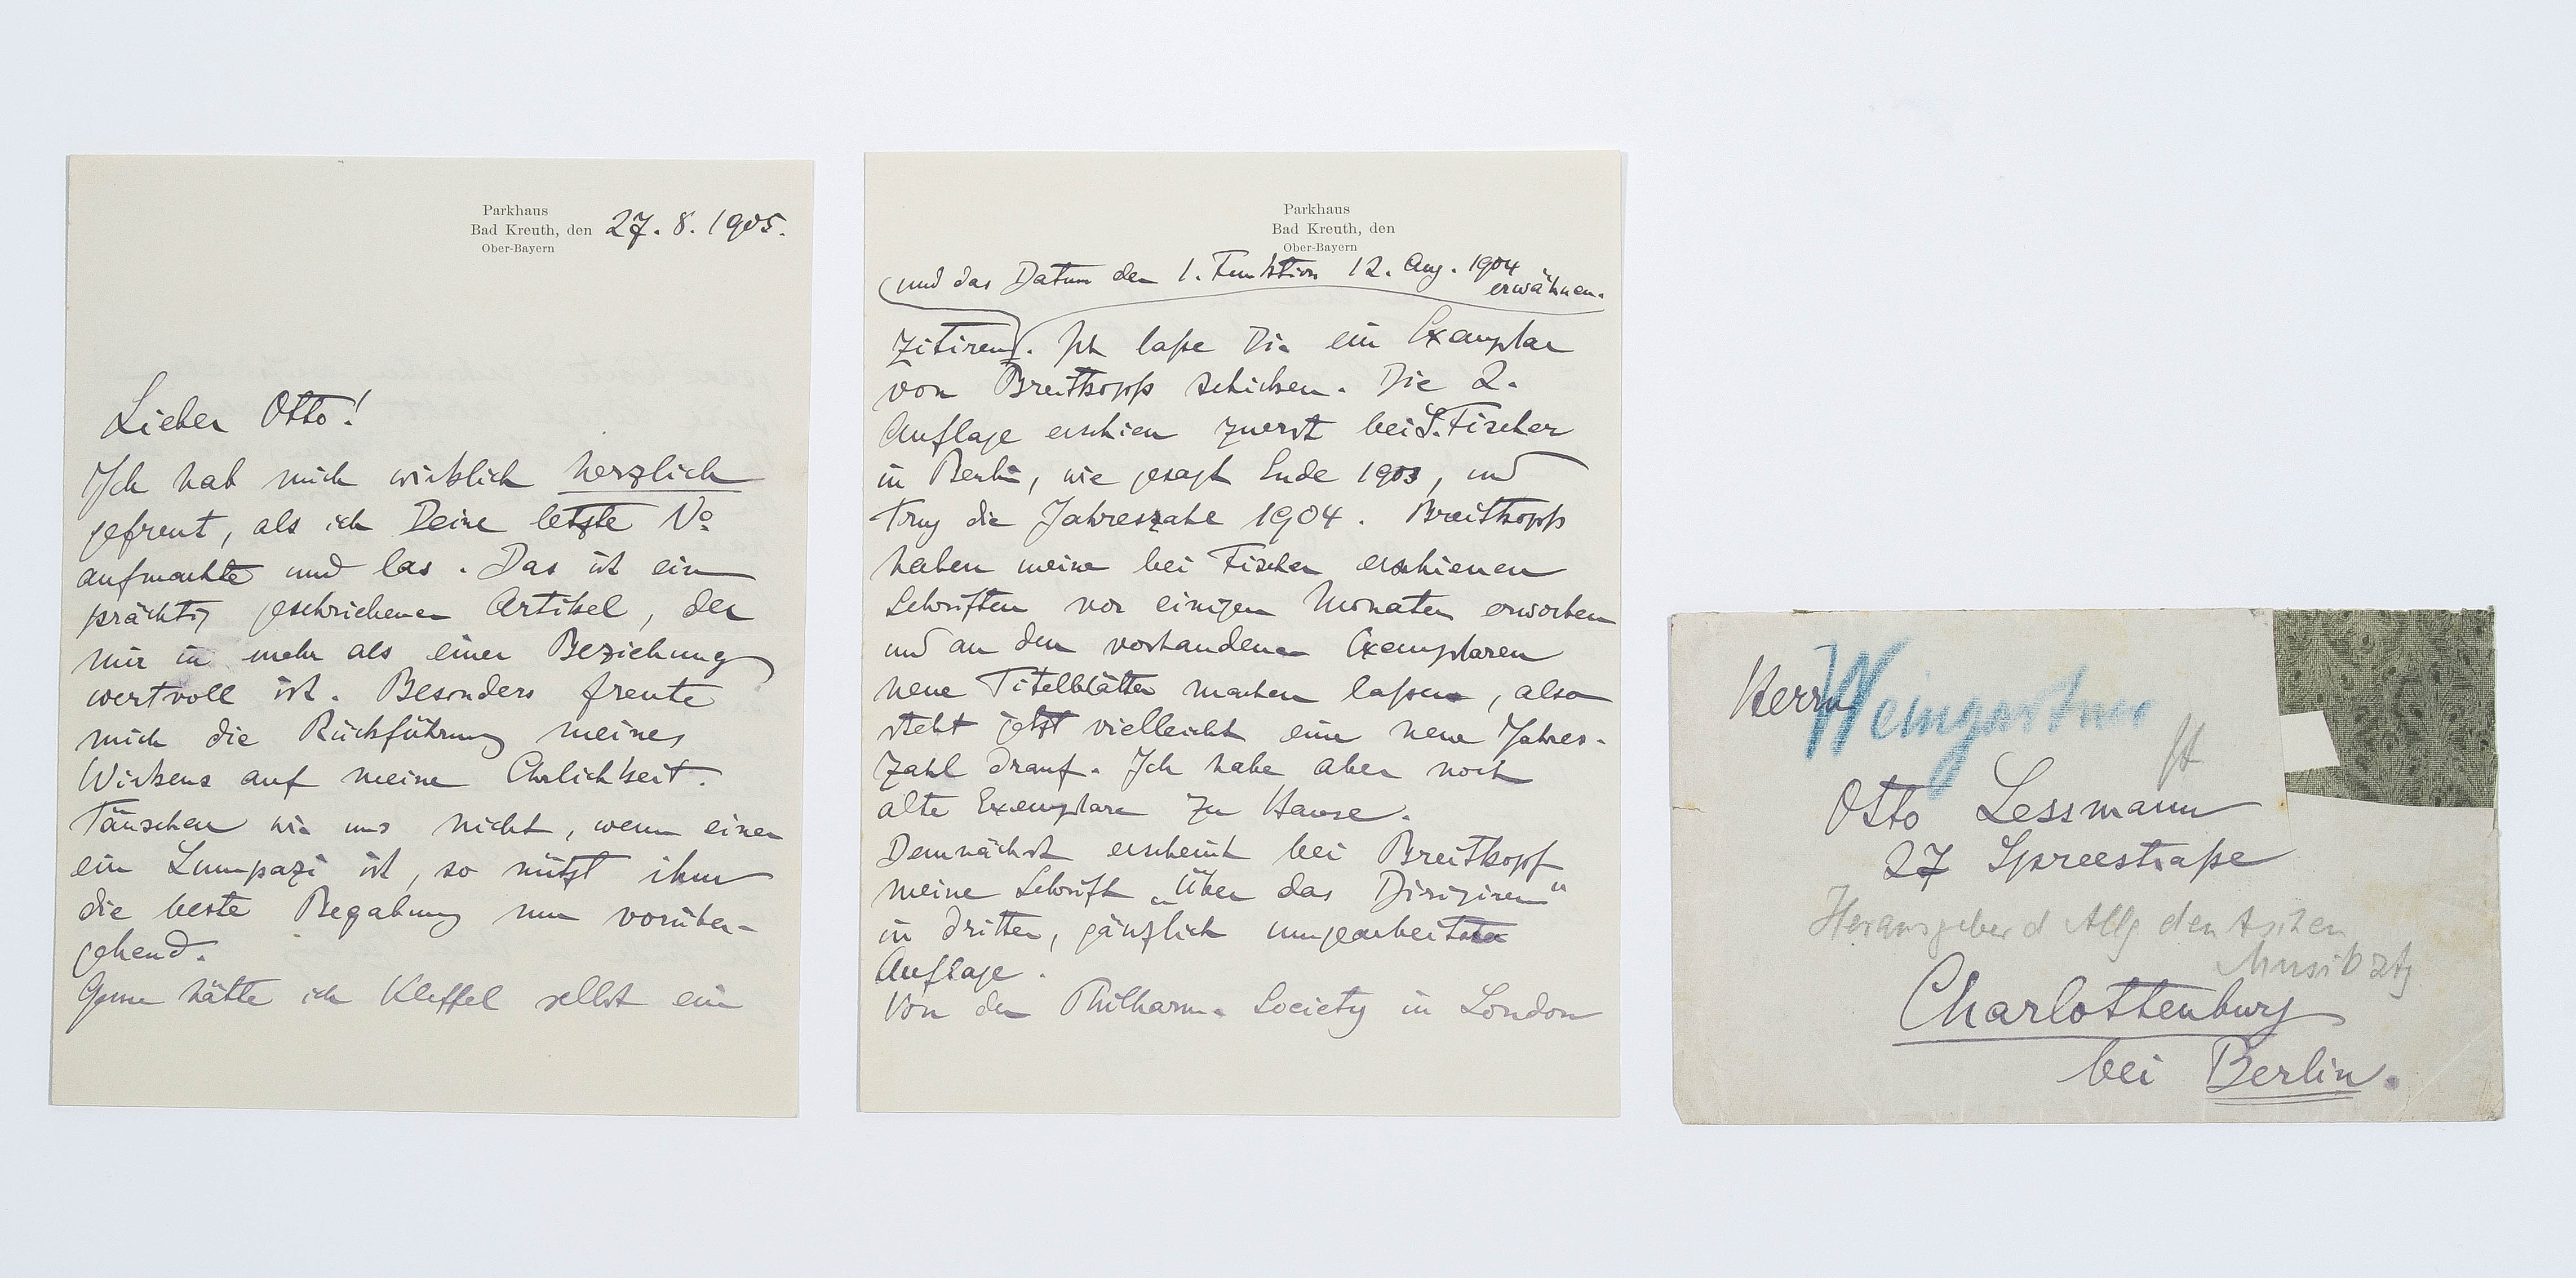 Parkhaus
Bad Kreuth, den 27. 8. 1905.
Ober-Bayern
Lieber Otto!
Ich hab mich wirklich herzlich
gefreut, als ich Deine letzte No
aufmachte und las. Das ist ein
prächtig geschriebener Artikel, der
mir in mehr als einer Beziehung
wertvoll ist. Besonders freute
mich die Rückführung meines
Wirkens auf meine Ehrlichkeit.
Täuschen wir uns nicht, wenn einer
ein Lumpazi ist, so nützt ihm
die beste Begabung nur vorüber-
gehend.
Gerne hätte ich Kleffel selbst ein
Parkhaus
Bad Kreuth, den
Ober-Bayern
und das Datum der 1. Funktion 12. Aug. 1904
erwähnen.
zitiren. Ich laße Dir ein Exemplar
von Breitkopfs schicken. Die 2.
Auflage erschien zuerst bei S. Fischer
in Berlin, wie gesagt Ende 1903, und
trug die Jahreszahl 1904. Breitkopfs
haben meine bei Fischer erschienenen
Schriften vor einigen Monaten erworben
und an den vorhandenen Exemplaren
neue Titelblätter machen laßen, also
steht jetzt vielleicht eine neue Jahres-
zahl drauf. Ich habe aber noch
alte Exemplare zu Hause.
Demnächst erscheint bei Breitkopf
meine Schrift „Über das Dirigiren"
in dritter, gänzlich umgearbeiteter
Auflage.
Von der Philharm. Society in London
Herrn Weingartner
Otto Lessmann
27 Spreestraße
Herausgeber d Allg deutschen
Musikztg
Charlottenburg
bei Berlin.